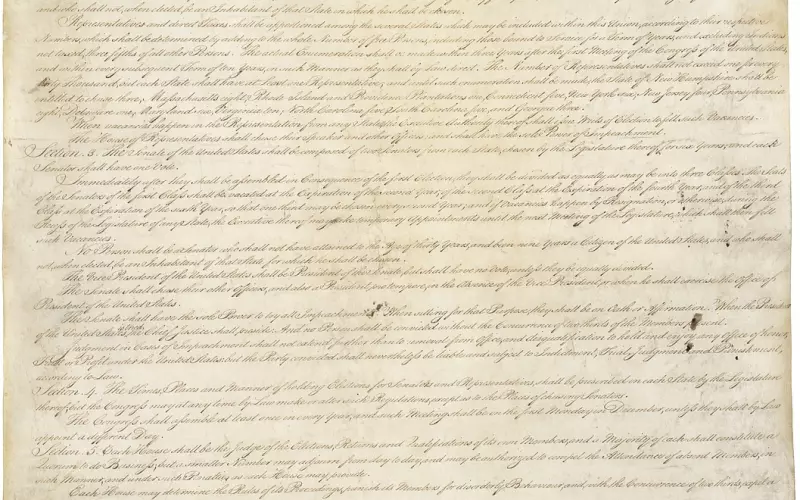 and who shall not, when elected, be an Inhabitant of that State in which he shall be chosen.
Representatives and direct Taxes shall be apportioned among the several States which may be included within this Union, according to their respective
Numbers, which shall be determined by adding to the whole Number of free Persons, including those bound to Service for a Term of Years, and excluding Indians
not taxed, three fifths of all other Persons. The actual Enumeration shall be made within three Years after the first Meeting of the Congress of the United States,
and within every subsequent Term of ten Years, in such Manner as they shall by Law direct. The Number of Representatives shall not exceed one for every
thirty Thousand, but each State shall have at Least one Representative; and until such enumeration shall be made, the State of New Hampshire shall be
entitled to chuse three, Massachusetts eight, Rhode-Island and Providence Plantations one, Connecticut five, New-York six, New Jersey four, Pennsylvania
eight, Delaware one, Maryland six, Virginia ten, North Carolina five, South Carolina five, and Georgia three.
When vacancies happen in the Representation from any State, the Executive Authority thereof shall issue Writs of Election to fill such Vacancies.
The House of Representatives shall chuse their Speaker and other Officers; and shall have the sole Power of Impeachment.
Section. 3. The Senate of the United States shall be composed of two Senators from each State, chosen by the Legislature thereof, for six Years; and each
Senator shall have one Vote.
Immediately after they shall be assembled in Consequence of the first Election, they shall be divided as equally as may be into three Classes. The Seats
of the Senators of the first Class shall be vacated at the Expiration of the second Year, of the second Class at the Expiration of the fourth Year, and of the third
Class at the Expiration of the sixth Year, so that one third may be chosen every second Year; and if Vacancies happen by Resignation, or otherwise, during the
Recess of the Legislature of any State, the Executive thereof may make temporary Appointments until the next Meeting of the Legislature, which shall then fill
such Vacancies.
No Person shall be a Senator who shall not have attained to the Age of thirty Years, and been nine Years a Citizen of the United States, and who shall
not, when elected, be an Inhabitant of that State for which he shall be chosen.
The Vice President of the United States shall be President of the Senate, but shall have no Vote, unless they be equally divided.
The Senate shall chuse their other Officers, and also a President pro tempore, in the Absence of the Vice President, or when he shall exercise the Office of
President of the United States.
The Senate shall have the sole Power to try all Impeachments. When sitting for that Purpose, they shall be on Oath or Affirmation. When the President
of the United States is tried, the Chief Justice shall preside: And no Person shall be convicted without the Concurrence of two thirds of the Members present.
Judgment in Cases of Impeachment shall not extend further than to removal from Office, and disqualification to hold and enjoy any Office of honor,
Trust or Profit under the United States: but the Party convicted shall nevertheless be liable and subject to Indictment, Trial, Judgment and Punishment,
according to Law.
Section. 4. The Times, Places and Manner of holding Elections for Senators and Representatives, shall be prescribed in each State by the Legislature
thereof; but the Congress may at any time by Law make or alter such Regulations, except as to the Places of chusing Senators.
The Congress shall assemble at least once in every Year, and such Meeting shall be on the first Monday in December, unless they shall by Law
appoint a different Day.
Section. 5. Each House shall be the Judge of the Elections, Returns and Qualifications of its own Members, and a Majority of each shall constitute a
Quorum to do Business; but a smaller Number may adjourn from day to day, and may be authorized to compel the Attendance of absent Members, in
such Manner, and under such Penalties as each House may provide.
Each House may determine the Rules of its Proceedings, punish its Members for disorderly Behaviour, and, with the Concurrence of two thirds, expel a